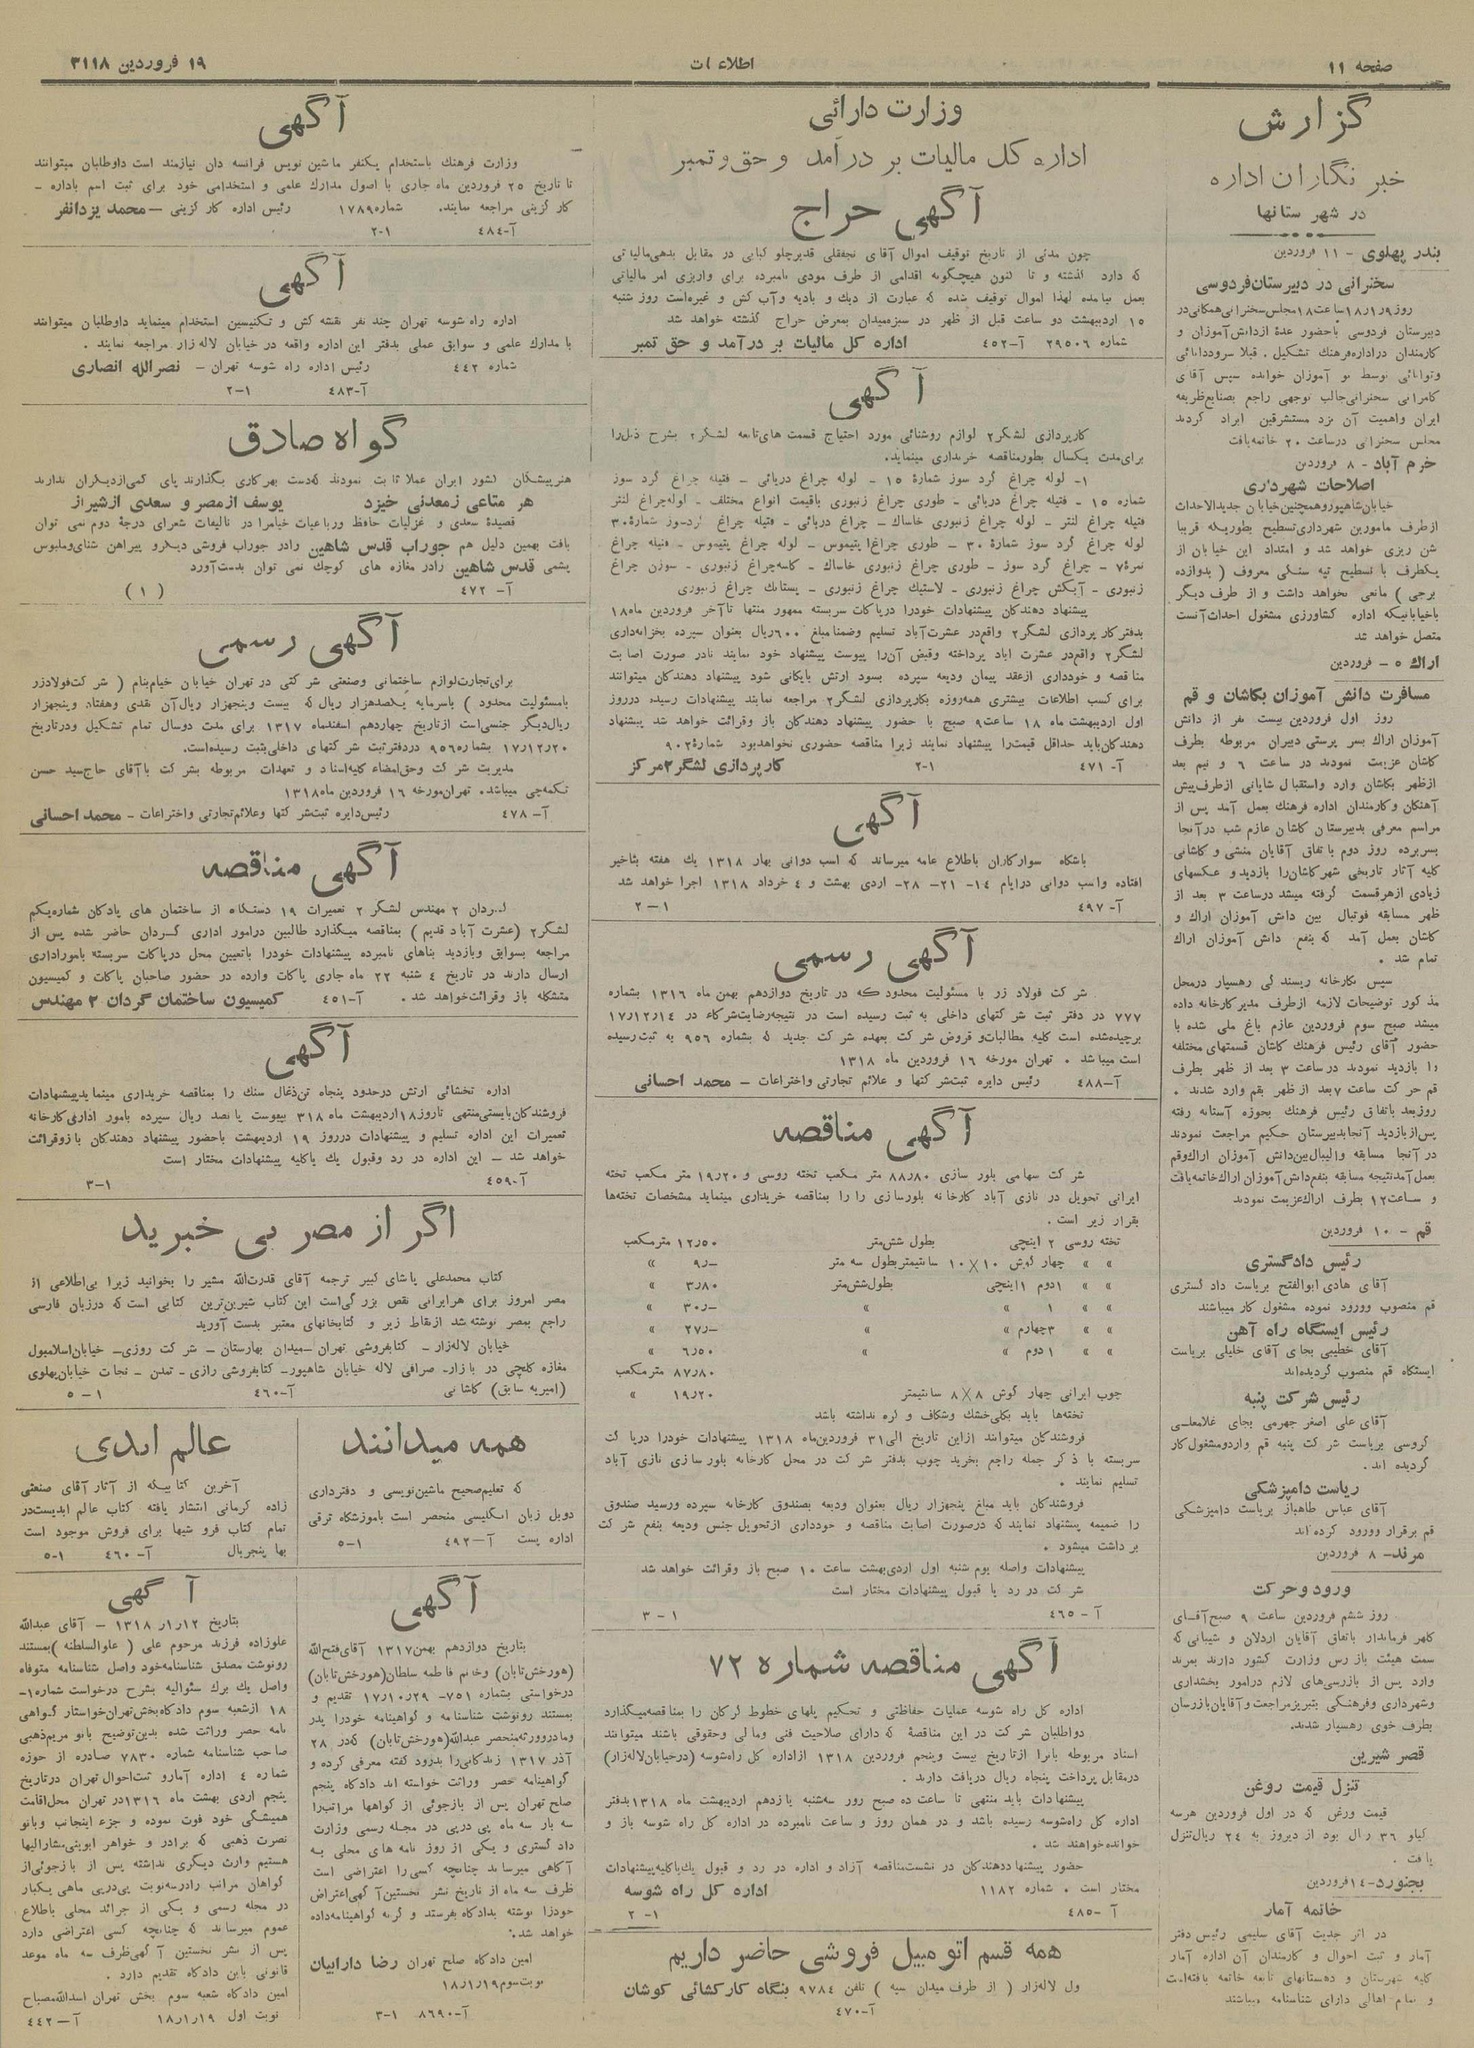 صفحه ۱۱
اطلاعات
۱۹ فروردین ۳۱۱۸
گزارش
خبرنگاران اداره
در شهرستانها
بندر پهلوی - ۱۱ فروردین
سخنرانی در دبیرستان فردوسی
دبیرستان فردوسی باحضور عدهٔ ازدانش آموزان و
کارمندان دراداره فرهنگ تشکیل . قبلا سرود دانائی
وتوانائی توسط نو آموزان خوانده سپس آقای
کامرانی سخنرانی جالب توجهی راجع بصنایع ظریفه
ایران واهمیت آن نزد مستشرقین ایراد کردند
مجلس سخنرانی درساعت ۲۰ خاتمه یافت
خرم آباد - ۸ فروردین
اصلاحات شهرداری
خیابان شاهپور وهمچنین خیابان جدیدالاحداث
ازطرف مامورین شهرداری تسطیح بطوریکه قریبا
شن ریزی خواهد شد و امتداد این خیابان از
یکطرف با تسطیح تپه سنگی معروف ( بدوازده
برجی ) مانعی نخواهد داشت و از طرف دیگر
باخیابانیکه اداره کشاورزی مشغول احداث آنست
متصل خواهد شد
اراک ۵ - فروردین
مسافرت دانش آموزان بکاشان و قم
روز اول فروردین بیست نفر از دانش
آموزان اراک بسر پرستی دبیران مربوطه بطرف
کاشان عزیمت نمودند در ساعت ۶ و نیم بعد
ازظهر بکاشان وارد واستقبال شایانی ازطرف پیش
آهنگان وکارمندان اداره فرهنگ بعمل آمد پس از
مراسم معرفی بدبیرستان کاشان عازم شب درآنجا
بسربرده روز دوم باتفاق آقایان منشی و کاشانی
کلیه آثار تاریخی شهر کاشان را بازدید و عکسهای
زیادی ازهر قسمت گرفته میشد درساعت ۳ بعد از
ظهر مسابقه فوتبال بین دانش آموزان اراک و
کاشان بعمل آمد که بنفع دانش آموزان اراک
تمام شد .
سپس بکارخانه ریسندگی رهسپار درمحل
مذکور توضیحات لازمه ازطرف مدیر کارخانه داده
میشد صبح سوم فروردین عازم باغ ملی شده با
حضور آقای رئیس فرهنگ کاشان قسمتهای مختلفه
را بازدید نمودند درساعت ۳ بعد از ظهر بطرف
قم حرکت ساعت ۷ بعد از ظهر بقم وارد شدند .
روزبعد باتفاق رئیس فرهنگ بحوزه آستانه رفته
پس ازبازدید آنجا بدبیرستان حکیم مراجعت نمودند
در آنجا مسابقه والیبال بین دانش آموزان اراک وقم
بعمل آمد نتیجه مسابقه بنفع دانش آموزان اراک خاتمه یافت
و ساعت ۱۲ بطرف اراک عزیمت نمودند
قم - ۱۰ فروردین
رئیس دادگستری
آقای هادی ابوالفتح بریاست دادگستری
قم منصوب وورود نموده مشغول کار میباشند
رئیس ایستگاه راه آهن
آقای خطیبی بجای آقای خلیلی بریاست
ایستگاه قم منصوب گردیده اند
رئیس شرکت پنبه
آقای علی اصغر جهرمی بجای غلامعلی
گروسی بریاست شرکت پنبه قم وارد ومشغول کار
گردیده اند .
ریاست دامپزشکی
آقای عباس طاهباز بریاست دامپزشکی
قم برقرار وورود کرده اند
مرند - ۸ فروردین
ورود وحرکت
روز ششم فروردین ساعت ۹ صبح آقای
کلهر فرماندار باتفاق آقایان اردلان و شیبانی که
سمت هیئت بازرس وزارت کشور دارند بمرند
وارد پس از بازرسی های لازم درامور بخشداری
وشهرداری وفرهنگی بتبریز مراجعت و آقایان بازرسان
بطرف خوی رهسپار شدند.
قصر شیرین
تنزل قیمت روغن
قیمت ورغن که در اول فروردین هرسه
کیلو ۳۶ ریال بود از دیروز به ۲۴ ریال تنزل
یافت .
بجنورد - ۱۴ فروردین
خاتمه آمار
در اثر جدیت آقای سلیمی رئیس دفتر
آمار و ثبت احوال و کارمندان آن اداره آمار
کلیه شهرستان و دهستانهای تابعه خاتمه یافته است
و تمام اهالی دارای شناسنامه میباشند
وزارت دارائی
اداره کل مالیات بر درآمد و حق و تمبر
آگهی حراج
چون مدتی از تاریخ توقیف اموال آقای نجفقلی قدیر چلو کبابی در مقابل بدهی مالیاتی
که دارد گذشته و تا کنون هیچگونه اقدامی از طرف مودی نامبرده برای واریزی امر مالیاتی
بعمل نیامده لهذا اموال توقیف شده که عبارت از دیک و بادیه و آب کش و غیره است روز شنبه
۱۵ اردیبهشت دو ساعت قبل از ظهر در سبزه میدان بمعرض حراج گذشته خواهد شد
شماره ۲۹۵۰۶ آ-۴۵۲ اداره کل مالیات بر درآمد و حق تمبر
آگهی
کارپردازی لشگر۲ لوازم روشنائی مورد احتیاج قسمت های تابعه لشگر۲ بشرح ذیل را
برای مدت یکسال بطور مناقصه خریداری مینماید.
۱- لوله چراغ گرد سوز شمارهٔ ۱۵ - لوله چراغ دریائی - فتیله چراغ گرد سوز
شماره ۱۵ - فتیله چراغ دریائی - طوری چراغ زنبوری باقیمت انواع مختلف - لوله چراغ لنتر
فتیله چراغ لنتر - لوله چراغ زنبوری خاساک - چراغ دریائی - فتیله چراغ گردسوز شمارهٔ ۳۰
لوله چراغ گرد سوز شمارهٔ ۳۰ - طوری چراغ اپتیموس - لوله چراغ پتیموس - فتیله چراغ
نمرهٔ ۷ - چراغ گرد سوز - طوری چراغ زنبوری خاساک - کاسه چراغ زنبوری - سوزن چراغ
زنبوری - آبکش چراغ زنبوری - لاستیک چراغ زنبوری - پستانک چراغ زنبوری
پیشنهاد دهندگان پیشنهادات خودرا درپاکات سربسته ممهور منتها تا آخر فروردین ماه ۱۸
بدفتر کارپردازی لشگر۲ واقع در عشرت آباد تسلیم وضمنا مبلغ ۶۰۰ ریال بعنوان سپرده بخزانه داری
لشگر۲ واقع در عشرت اباد پرداخته وقبض آن را پیوست پیشنهاد خود نمایند تادر صورت اصابت
مناقصه و خودداری ازعقد پیمان ودیعه سپرده بسود ارتش بایگانی شود پیشنهاد دهندگان میتوانند
برای کسب اطلاعات بیشتری همه روزه بکارپردازی لشگر۲ مراجعه نمایند پیشنهادات رسیده درروز
اول اردیبهشت ماه ۱۸ ساعت ۹ صبح با حضور پیشنهاد دهندگان باز وقرائت خواهد شد پیشنهاد
دهندگان باید حداقل قیمت را پیشنهاد نمایند زیرا مناقصه حضوری نخواهدبود شمارهٔ ۹۰۲
آ- ۴۷۱ ۲-۱ کارپردازی لشگر ۲ مرکز
آگهی
باشگاه سوارکاران باطلاع عامه میرساند که اسب دوانی بهار ۱۳۱۸ یک هفته بتاخیر
افتاده و اسب دوانی درایام ۱۴- ۲۱- ۲۸- اردی بهشت و ۴ خرداد ۱۳۱۸ اجرا خواهد شد
آ- ۴۹۷ ۱-۲
آگهی رسمی
شرکت فولاد زر با مسئولیت محدود که در تاریخ دوازدهم بهمن ماه ۱۳۱۶ بشماره
۷۷۷ در دفتر ثبت شرکتهای داخلی به ثبت رسیده است در نتیجه رضایت شرکاء در ۱۷٫۱۲٫۱۴
برچیده شده است کلیه مطالبات و قروض شرکت بعهده شرکت جدید که بشماره ۹۵۶ به ثبت رسیده
است میباشد . تهران مورخه ۱۶ فروردین ماه ۱۳۱۸
آ-۴۸۸ رئیس دایره ثبت شرکتها و علائم تجارتی واختراعات - محمد احسانی
آگهی مناقصه
شرکت سهامی بلور سازی ۸۸٫۸۰ متر مکعب تخته روسی و ۱۹٫۲۰ متر مکعب تخته
ایرانی تحویل در نازی آباد کارخانه بلورسازی را را بمناقصه خریداری مینماید مشخصات تخته ها
بقرار زیر است .
تخته روسی ۲ اینچی بطول شش متر ۱۲٫۵۰ متر مکعب
» » چهار گوش ۱۰×۱۰ سانتیمتر بطول سه متر ۹٫- »
» » ۱ دوم ۱ اینچی بطول شش متر ۳٫۸۰ »
» » ۱ » » ۳۰٫- »
» » ۳ چهارم » » ۲۷٫- »
» » ۱ دوم » » ۶٫۵۰ »
۸۷٫۸۰ متر مکعب
چوب ایرانی چهار گوش ۸×۸ سانتیمتر ۱۹٫۲۰ »
تخته ها باید بکلی خشک وشکاف و گره نداشته باشد
فروشندگان میتوانند ازاین تاریخ الی ۳۱ فروردین ماه ۱۳۱۸ پیشنهادات خودرا درپاکت
سربسته با ذکر جمله راجع بخرید چوب بدفتر شرکت در محل کارخانه بلورسازی نازی آباد
تسلیم نمایند .
فروشندگان باید مبلغ پنجهزار ریال بعنوان ودیعه بصندوق کارخانه سپرده ورسید صندوق
را ضمیمه پیشنهاد نمایند که درصورت اصابت مناقصه و خودداری ازتحویل جنس ودیعه بنفع شرکت
برداشت میشود .
پیشنهادات واصله یوم شنبه اول اردی بهشت ساعت ۱۰ صبح باز وقرائت خواهد شد
شرکت در رد یا قبول پیشنهادات مختار است
آ - ۴۶۵ ۱-۳
آگهی مناقصه شماره ۷۲
اداره کل راه شوسه عملیات حفاظتی و تحکیم پلهای خطوط لرکان را بمناقصه میگذارد
دواطلبان شرکت در این مناقصهٔ که دارای صلاحیت فنی و مالی وحقوقی باشند میتوانند
اسناد مربوطه بانرا ازتاریخ بیست وپنجم فروردین ۱۳۱۸ ازاداره کل راه شوسه (درخیابان لاله زار)
درمقابل پرداخت پنجاه ریال دریافت دارند .
پیشنهادات باید منتهی تا ساعت ده صبح روز سه شنبه یازدهم اردیبهشت ماه ۱۳۱۸ بدفتر
اداره کل راه شوسه رسیده باشد و در همان روز و ساعت نامبرده در اداره کل راه شوسه باز و
خوانده خواهند شد .
حضور پیشنهاد دهندگان در نشست مناقصه آزاد و اداره در رد و قبول یک یا کلیه پیشنهادات
مختار است . شماره ۱۱۸۲ اداره کل راه شوسه
آ -۴۸۵ ۲-۱
همه قسم اتومبیل فروشی حاضر داریم
ول لاله زار ( از طرف میدان سپه ) تلفن ۹۷۸۴ بنگاه کارکشائی کوشان
آ-۴۷۰
آگهی
وزارت فرهنگ باستخدام یکنفر ماشین نویس فرانسه دان نیازمند است داوطلبان میتوانند
تا تاریخ ۲۵ فروردین ماه جاری با اصول مدارک علمی و استخدامی خود برای ثبت اسم باداره -
کارگزینی مراجعه نمایند. شماره ۱۷۸۹ رئیس اداره کارگزینی - محمد یزدانفر
آ-۴۸۴ ۲-۱
آگهی
اداره راه شوسه تهران چند نفر نقشه کش و تکنیسین استخدام مینماید داوطلبان میتوانند
با مدارک علمی و سوابق عملی بدفتر این اداره واقعه در خیابان لاله زار مراجعه نمایند .
شماره ۴۴۲ رئیس اداره راه شوسه تهران - نصرالله انصاری
آ-۴۸۳ ۲-۱
گواه صادق
هنرپیشگان کشور ایران عملا ثابت نمودند که دست بهر کاری بگذارند پای کمی ازدیگران ندارند
هر متاعی زمعدنی خیزد یوسف ازمصر و سعدی ازشیراز
قصیدهٔ سعدی و غزلیات حافظ ورباعیات خیام را در تالیفات شعرای درجهٔ دوم نمی توان
یافت بهمین دلیل هم جوراب قدس شاهین رادر جوراب فروشی دیگر و پیراهن شنای وملبوس
پشمی قدس شاهین رادر مغازه های کوچک نمی توان بدست آورد
آ- ۴۷۲ (۱)
آگهی رسمی
برای تجارت لوازم ساختمانی وصنعتی شرکتی در تهران خیابان خیام بنام ( شرکت فولاد زر
بامسئولیت محدود ) باسرمایه یکصد هزار ریال که بیست وپنجهزار ریال آن نقدی وهفتاد وپنجهزار
ریال دیگر جنسی است ازتاریخ چهاردهم اسفندماه ۱۳۱۷ برای مدت دوسال تمام تشکیل ودرتاریخ
۱۷٫۱۲٫۲۰ بشماره ۹۵۶ دردفتر ثبت شرکتهای داخلی بثبت رسیده است.
مدیریت شرکت وحق امضاء کلیه اسناد و تعهدات مربوطه بشرکت با آقای حاج سید حسن
تکمه چی میباشد. تهران مورخه ۱۶ فروردین ماه ۱۳۱۸
آ- ۴۷۸ رئیس دایره ثبت شرکتها وعلائم تجارتی واختراعات - محمد احسانی
آگهی مناقصه
گردان ۲ مهندس لشگر ۲ تعمیرات ۱۹ دستگاه از ساختمان های پادگان شماره یکم
لشگر۲ (عشرت آباد قدیم ) بمناقصه میگذارد طالبین درامور اداری گردان حاضر شده پس از
مراجعه بسوابق وبازدید بناهای نامبرده پیشنهادات خودرا باتعیین محل درپاکات سربسته بامور اداری
ارسال دارند در تاریخ ۴ شنبه ۲۲ ماه جاری پاکات وارده در حضور صاحبان پاکات و کمیسیون
متشکله باز وقرائت خواهد شد . آ-۴۵۱ کمیسیون ساختمان گردان ۲ مهندس
آگهی
اداره تخشائی ارتش درحدود پنجاه تن ذغال سنک را بمناقصه خریداری مینماید پیشنهادات
فروشندگان بایستی منتهی تا روز ۱۸ اردیبهشت ماه ۳۱۸ بپیوست پانصد ریال سپرده بامور اداری کارخانه
تعمیرات این اداره تسلیم و پیشنهادات درروز ۱۹ اردیبهشت باحضور پیشنهاد دهندگان بازوقرائت
خواهد شد - این اداره در رد وقبول یک یاکلیه پیشنهادات مختار است
آ-۴۵۹ ۳-۱
اگر از مصر بی خبرید
کتاب محمدعلی پاشای کبیر ترجمه آقای قدرت الله مشیر را بخوانید زیرا بی اطلاعی از
مصر امروز برای هر ایرانی نقص بزرگی است این کتاب شیرین ترین کتابی است که درزبان فارسی
راجع بمصر نوشته شد ازنقاط زیر و کتابخانهای معتبر بدست آورید
خیابان لاله زار - کتابفروشی تهران - میدان بهارستان - شرکت روزی - خیابان اسلامبول
مغازه گلچی در بازار- صرافی لاله خیابان شاهپور- کتابفروشی رازی - تمدن - نجات خیابان پهلوی
(امیریه سابق) کاشانی آ-۴۶۰ ۱-۵
همه میدانند
که تعلیم صحیح ماشین نویسی و دفترداری
دوبل زبان انگلیسی منحصر است باموزشگاه ترقی
اداره پست آ-۴۹۲ ۱-۵
عالم ابدی
آخرین کتابیکه از آثار آقای صنعتی
زاده کرمانی انتشار یافته کتاب عالم ابدیست در
تمام کتاب فروشیها برای فروش موجود است
بها پنجریال آ- ۴۶۰ ۱-۵
آگهی
بتاریخ دوازدهم بهمن ۱۳۱۷ آقای فتح الله
(هورخش تابان) وخانم فاطمه سلطان (هورخش تابان)
درخواستی بشماره ۷۵۱- ۱۷٫۱۰٫۲۹ تقدیم و
بمستند رونوشت شناسنامه و گواهینامه خودرا پدر
ومادرورثه منحصر عبدالله (هورخش تابان) که در ۲۸
آذر ۱۳۱۷ زندگانی را بدرود گفته معرفی کرده و
گواهینامه حصر وراثت خواسته اند دادگاه پنجم
صلح تهران پس از بازجوئی از گواهها مراتب را
سه بار سه ماه پی درپی در مجله رسمی وزارت
دادگستری و یکی از روز نامه های محلی به
آگاهی میرساند چنانچه کسی را اعتراضی است
ظرف سه ماه از تاریخ نشر نخستین آگهی اعتراض
خودرا نوشته بدادگاه بفرستد و گرنه گواهینامه داده
خواهد شد.
امین دادگاه صلح تهران رضا دارابیان
نوبت سوم ۱۸٫۱٫۱۹
آ-۸۶۹۰ ۳-۱
آگهی
بتاریخ ۱۲ ٫۱٫ ۱۳۱۸ - آقای عبدالله
علوزاده فرزند مرحوم علی ( علوالسلطنه ) بمستند
رونوشت مصدق شناسنامه خود واصل شناسنامه متوفاه
واصل یک برک سئوالیه بشرح درخواست شماره ۱-
۱۸ ازشعبه سوم دادگاه بخش تهران خواستار گواهی
نامه حصر وراثت شده بدین توضیح بانو مریم ذهبی
صاحب شناسنامه شماره ۷۸۳۰ صادره از حوزه
شماره ۴ اداره آمار و ثبت احوال تهران درتاریخ
پنجم اردی بهشت ماه ۱۳۱۶ در تهران محل اقامت
همیشگی خود فوت نموده و جزء اینجانب وبانو
نصرت ذهبی که برادر و خواهر ابوینی مشارالیها
هستیم وارث دیگری نداشته پس از بازجوئی از
گواهان مراتب را درسه نوبت پی درپی ماهی یکبار
در مجله رسمی و یکی از جرائد محلی باطلاع
عموم میرساند که چنانچه کسی اعتراضی دارد
پس از نشر نخستین آگهی ظرف سه ماه موعد
قانونی باین دادگاه تقدیم دارد .
امین دادگاه شعبه سوم بخش تهران اسدالله مصباح
نوبت اول ۱۸٫۱٫۱۹ آ- ۴۴۲